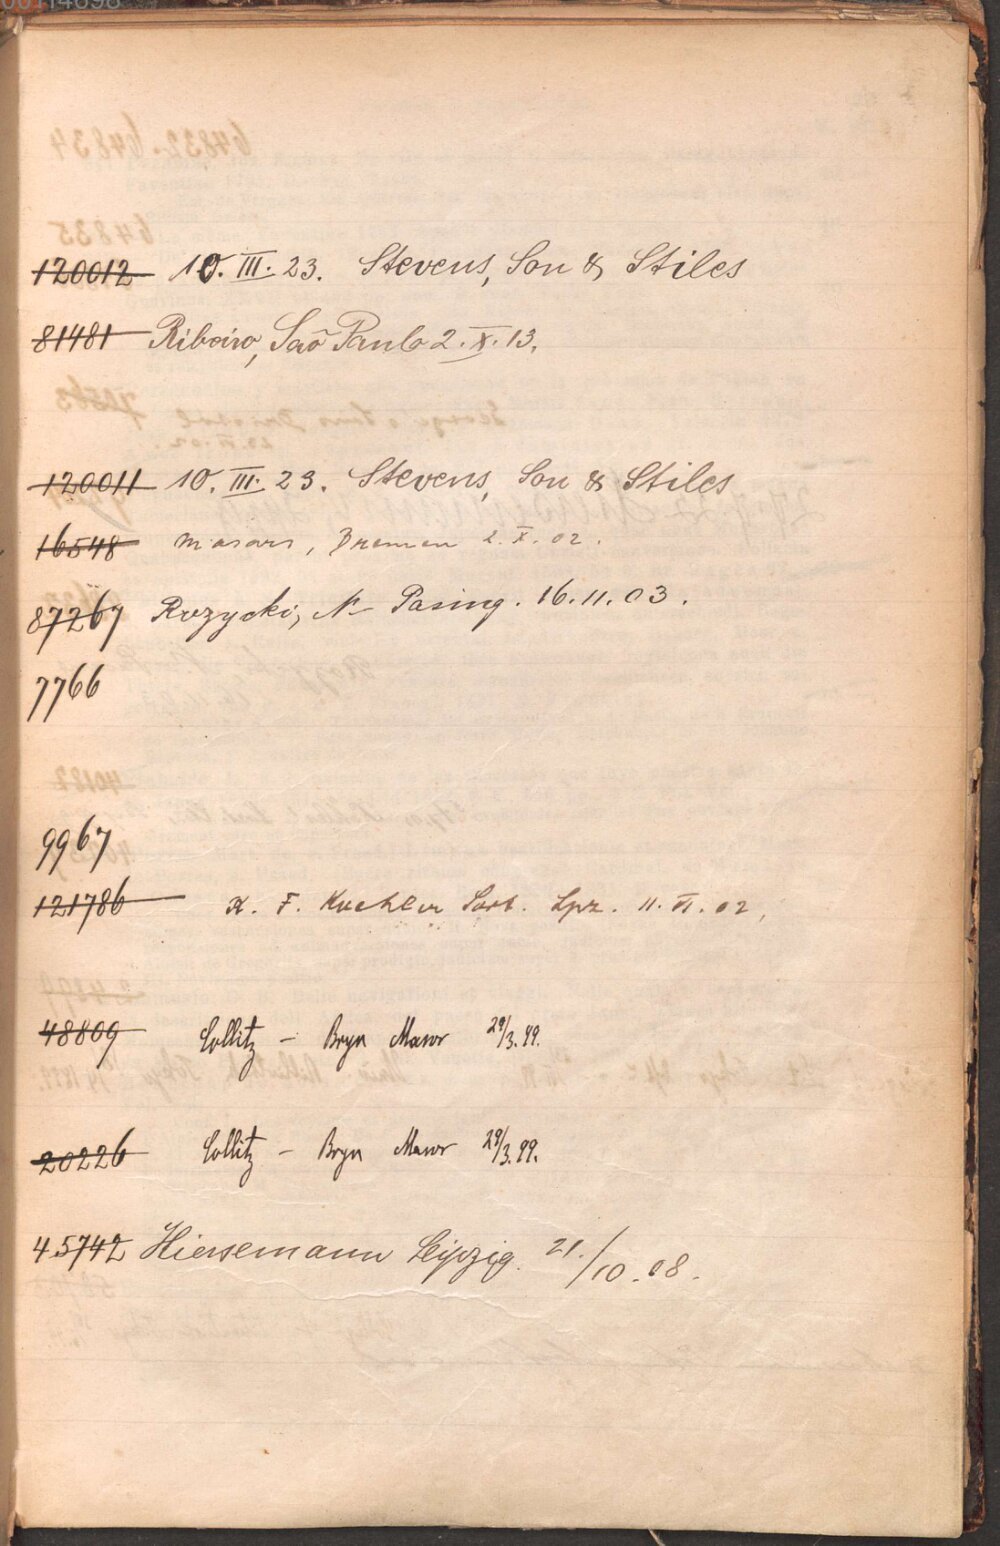 120012 10. III. 23. Stevens, Son & Stiles
81481 Ribeiro, São Paulo 2. X. 13.
120011 10. III. 23. Stevens, Son & Stiles
16548 Bremen 2. X. 02.
87267 Rozycki, Pasing. 16.11.03.
7766
9967
121786 K. F. Koehler Sort. Lpz. 11. VI. 02,
48809 Collitz – Bryn Mawr 29/3.99.
20226 Collitz – Bryn Mawr 29/3.99.
45742 Hiersemann Leipzig. 21./10.08.